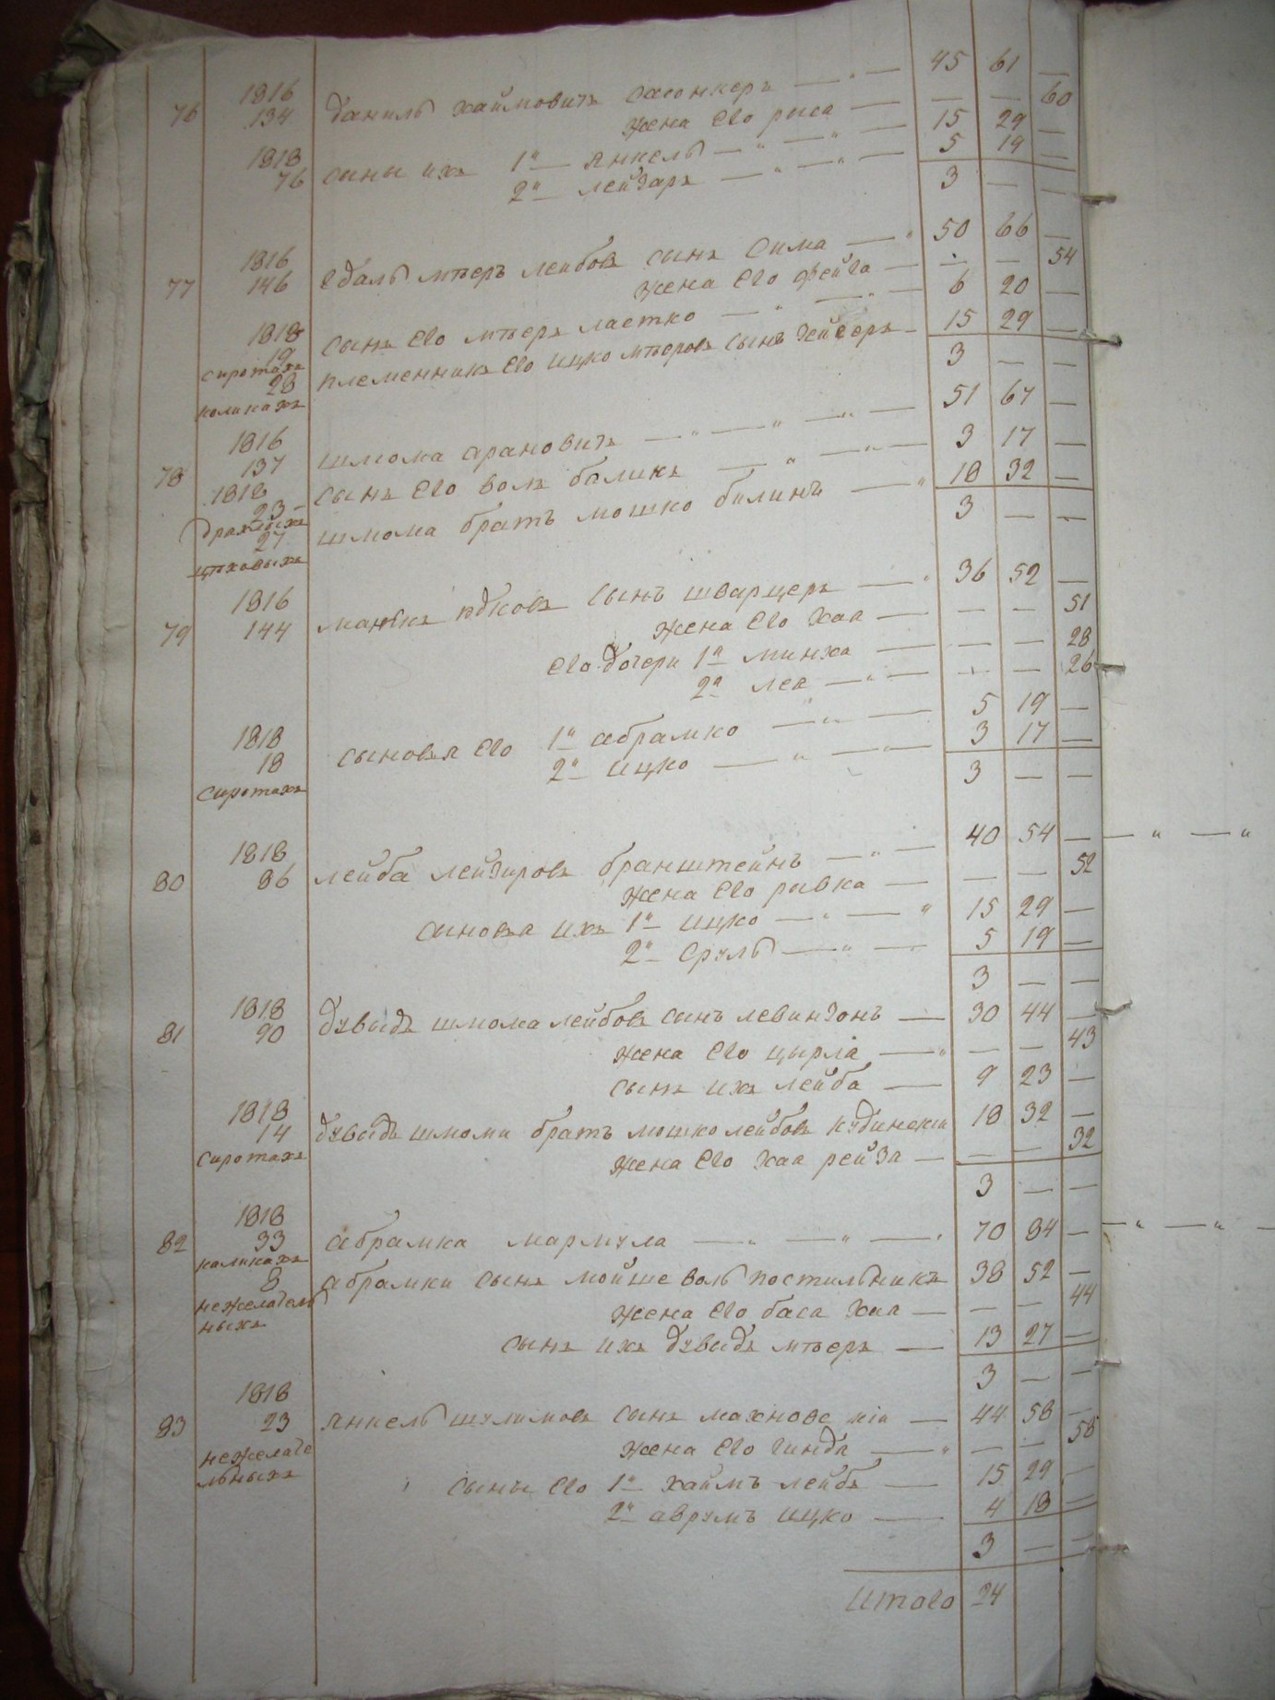 1816 45 61 —
76 134 даниль хаимовичъ — " —
жена его рыса — — — 60
1818 сыны ихъ 1й янкель — " — 15 29 —
76 2й лейзаръ — " — " — 5 19 —
3 — —
1816 50 66 —
77 146 мееръ лейбовъ сынъ сима — "
жена его фейга — — — 54
1818 сынъ его мееръ ластко — " — " 6 20 —
19 сиротахъ племенникъ его ицко мееровъ сынъ 15 29 —
28 каликахъ 3 — —
1816 51 67 —
78 137 шмома арановичъ — " — " — " —
1818 сынъ его волъ балинъ — " — " — 3 17 —
23 — шмома братъ мошко билинъ — " 18 32 —
27 3 — —
цеховыхъ
1816 36 52 —
79 144 юдковъ сынъ шварцеръ — "
жена его хая — — — 51
его дочери 1я минха — — — 28
2я лея — " — — — 26
1818 сыновья его 1й абрамко — " — 5 19 —
18 2й ицко — " — " 3 17 —
сиротахъ 3 — —
1818 40 54 — — " — "
80 86 лейба лейзировъ бранштейнъ — " —
жена его ривка — — — 52
сыновья ихъ 1й ицко — " — " 15 29 —
2й сруль — " — 5 19 —
3 — —
1818
81 90 дувидъ шмома лейбовъ сынъ левинзонъ — 30 44 —
жена его цырла — " — — 43
сынъ ихъ лейба — 9 23 —
1818
14 дувидъ шмоми братъ мошко лейбовъ 18 32 —
сиротахъ жена его хая рейза — — — 32
3 — —
1818
82 33 абрамка мармула — " — " — " 70 84 — — " — " —
каликахъ
8 абрамки сынъ мойше воль постильникъ 38 52 —
нежелатель
ныхъ жена его баса хая — — — 44
сынъ ихъ дувидъ мееръ — 13 27 —
3 — —
1818
83 23 янкель шулимовъ сынъ махновс кiи — 44 58 —
нежелате жена его гинда — " — — 58
льныхъ сыны его 1й хаимъ лейбъ — 15 29 —
2й аврумъ ицко — 4 18 —
3 — —
Итого 24